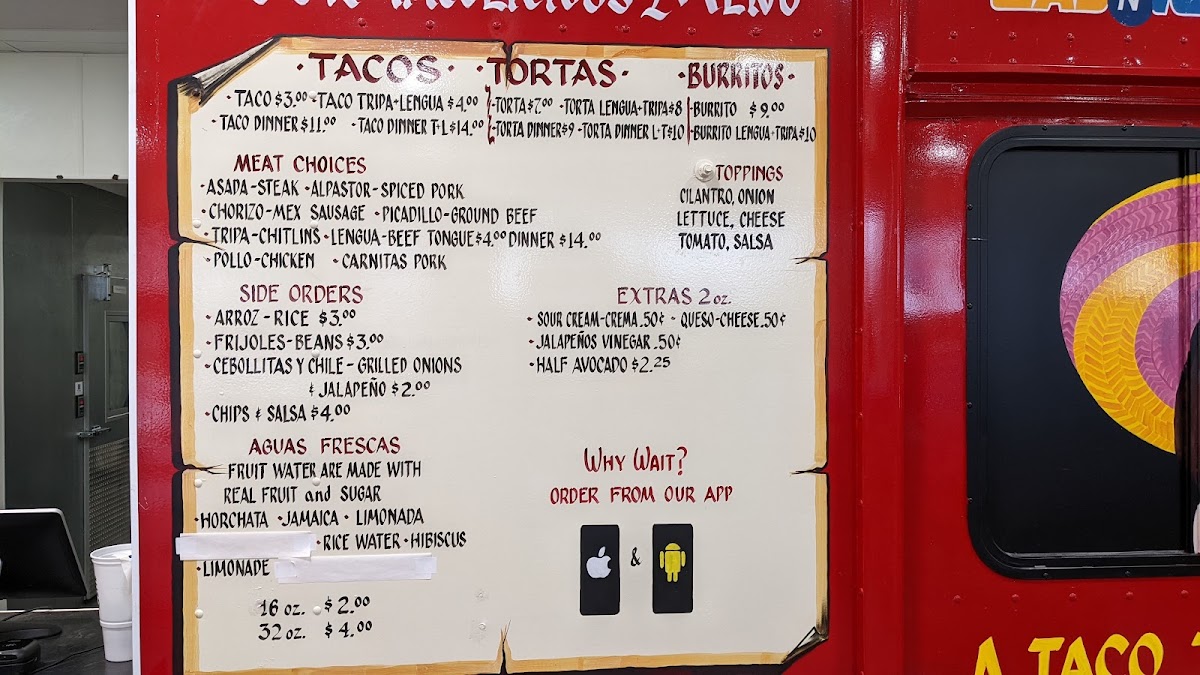 MENU
·TACOS· ·TORTAS· ·BURRITOS·
·TACO $3.00 ·TACO TRIPA+LENGUA $4.00 ·TORTA $7.00 ·TORTA LENGUA+TRIPA $8 ·BURRITO $9.00
·TACO DINNER $11.00 ·TACO DINNER T·L $14.00 ·TORTA DINNER $9 ·TORTA DINNER L·T $10 ·BURRITO LENGUA+TRIPA $10
MEAT CHOICES
·ASADA-STEAK ·ALPASTOR-SPICED PORK
·CHORIZO-MEX SAUSAGE ·PICADILLO-GROUND BEEF
·TRIPA-CHITLINS·LENGUA-BEEF TONGUE $4.00 DINNER $14.00
·POLLO-CHICKEN ·CARNITAS PORK
TOPPINGS
CILANTRO, ONION
LETTUCE, CHEESE
TOMATO, SALSA
SIDE ORDERS
·ARROZ-RICE $3.00
·FRIJOLES-BEANS $3.00
·CEBOLLITAS Y CHILE-GRILLED ONIONS
& JALAPEÑO $2.00
·CHIPS & SALSA $4.00
EXTRAS 2 oz.
·SOUR CREAM-CREMA .50¢ ·QUESO-CHEESE .50¢
·JALAPEÑOS VINEGAR .50¢
·HALF AVOCADO $2.25
AGUAS FRESCAS
FRUIT WATER ARE MADE WITH
REAL FRUIT and SUGAR
·HORCHATA ·JAMAICA · LIMONADA
·RICE WATER ·HIBISCUS
·LIMONADE
16 oz. $2.00
32 oz. $4.00
WHY WAIT?
ORDER FROM OUR APP
&
A TACO